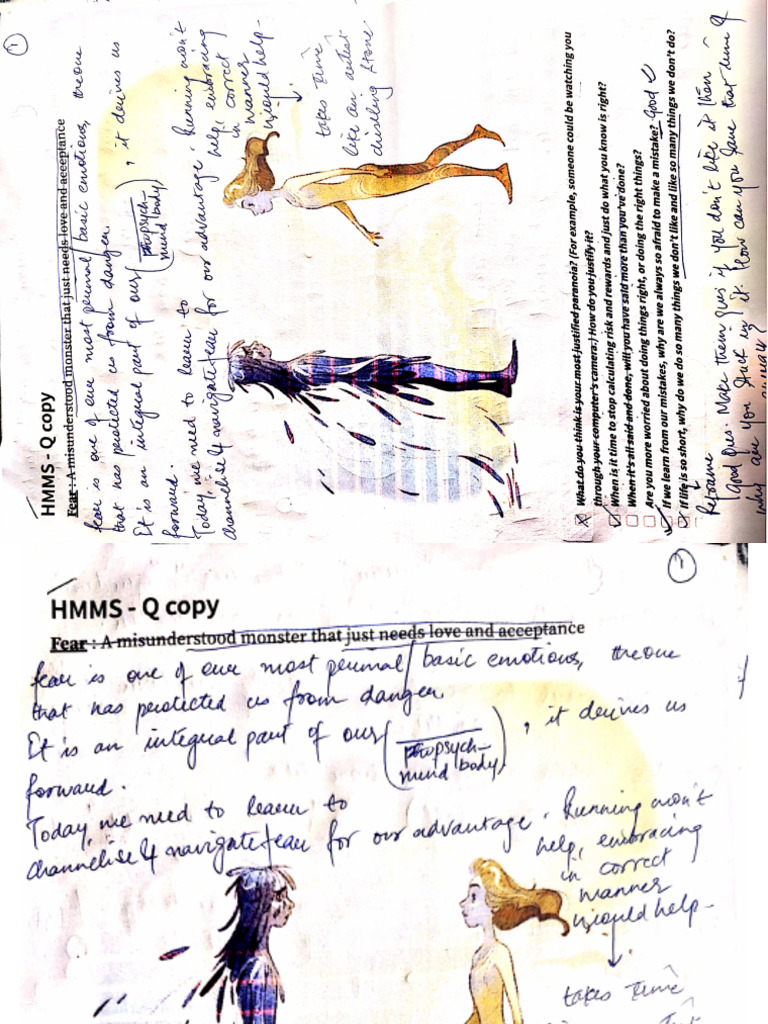 1
HMMS - Q copy
Fear : A misunderstood monster that just needs love and acceptance
fear is one of our most primal/basic emotions, the one
that has protected us from danger.
It is an integral part of our (psych- mind body), it derives us
forward.
Today, we need to learn to
channelise & navigate fear for our advantage. Running won't
help, embracing
in correct
manner
would help.
takes time
like an artist
chiseling stone
What do you think is your most justified paranoia? (For example, someone could be watching you
through your computer's camera.) How do you justify it?
When is it time to stop calculating risk and rewards and just do what you know is right?
When it's all said and done, will you have said more than you've done?
Are you more worried about doing things right, or doing the right things?
If we learn from our mistakes, why are we always so afraid to make a mistake? Good
If life is so short, why do we do so many things we don't like and like so many things we don't do?
Reframe
Good ones. Make them ques if you don't like it then
why are you stuck in it. How can you
HMMS - Q copy
Fear : A misunderstood monster that just needs love and acceptance
fear is one of our most primal/basic emotions, the one
that has protected us from danger
It is an integral part of our (psych- mind body), it derives us
forward.
Today, we need to learn to
channelise & navigate fear for our advantage. Running won't
help, embracing
in correct
manner
would help.
takes time